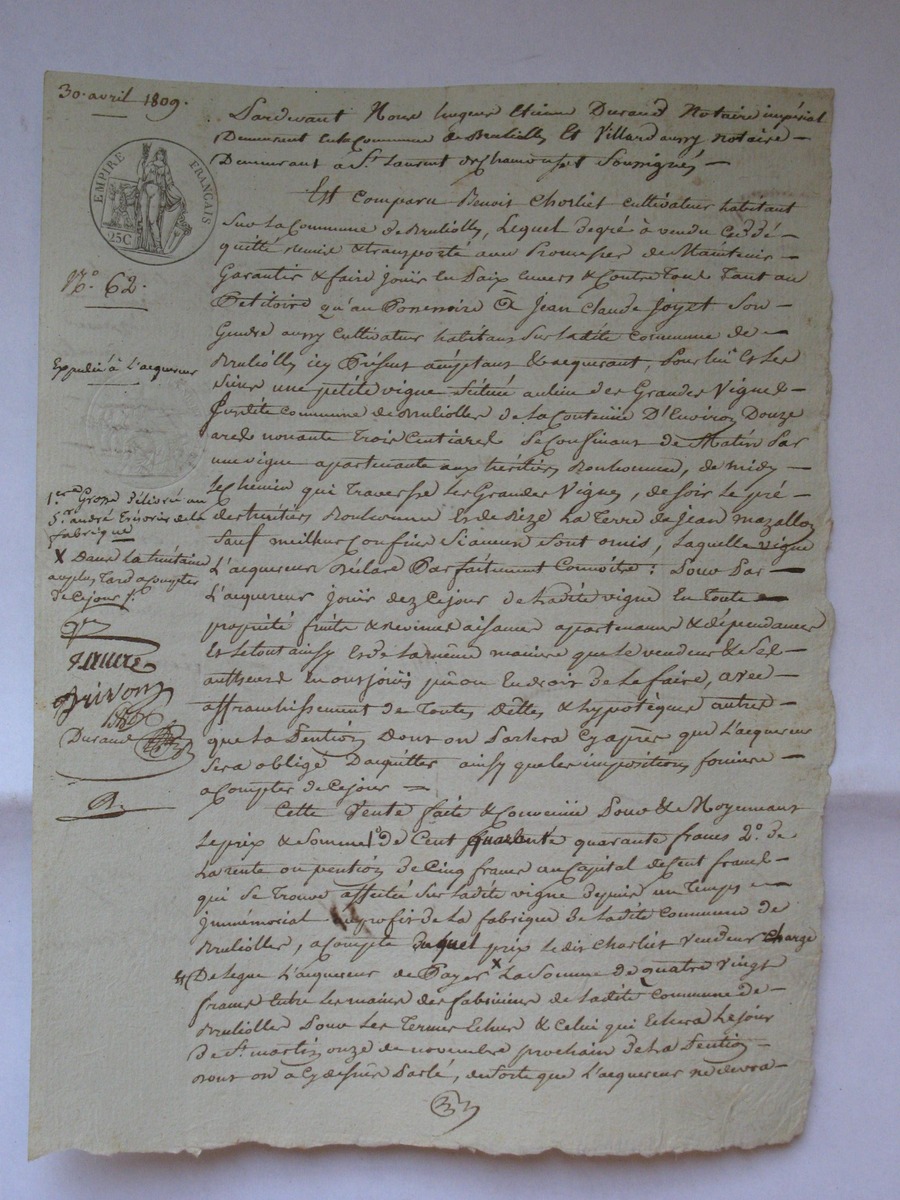 30 avril 1809.
Pardevant Nous hugues Etienne Durand Notaire impérial
Demeurant en la Commune de Brulliolles Et Villard aussy notaire
Demeurant à St. Laurent de Chamousset Soussignés
EMPIRE FRANÇAIS
25C
Est Comparu Benoit Charliet cultivateur habitant
Sur La Commune de Brulliolles, Lequel de gré à vendu Ceddé
quitté remis & transporté avec Promesse de Maintenir
N.º 62.
Garantir & faire Jouïr En Paix Envers & Contre Tout Tant au
Petitoire qu'au Possessoire à Jean Claude Joyet Son
Gendre aussy Cultivateur habitant Sur Ladite Commune de
Expedié à L'acquereur
Brulliolles icy Présent aceptant & acquerant, Pour lui Et Les
Siens une petite vigne Située au lieu des Grandes Vignes
Susdite commune de Brulliolles de La Contenüe D'Environ Douze
ares nonante Trois Centiares Se Confinant de Matin Par
une vigne apartenante aux héritiers Bonhomme, de midy
Le Chemin qui Traverse Les Grandes Vignes, de Soir Le pré
1.ere Grosse Délivrée au
Sr. andré Trivorin de la
fabrique
des héritiers Bonhomme Et de Bize La Terre de Jean mazallon
Sauf meilleurs Confins Si aucuns Sont omis, Laquelle vigne
X Dans la huitaine
au plus Tard a compter
de Ce jour
L'acquereur Déclare Parfaitement Connoitre: Pour Par
L'acquereur Jouïr dez Ce jour de Ladite vigne En Toute
propriété fruits & revenus aisances apartenances & dépendances
Et Le tout ainsy Et de La même maniere que Le vendeur & Ses
autheurs En ont Jouis pû ou En droit de Le faire, avec
affranchissement de Toutes Dettes & hypotèques autres
Durand
que La Pention Dont on Parlera Cy après que L'acquereur
Sera obligé D'acquitter ainsy que Les impositions fonciere
a Compter de Ce jour
Cette Vente faite & Convenüe Pour & Moyennant
Le prix & Somme 1º. de Cent quarante francs 2º. de
La rente ou pention de Cinq francs au Capital de Cent francs
qui Se Trouve affectée Sur Ladite vigne Depuis un Temps
Immémorial au profit de La fabrique de Ladite Commune de
Brulliolles, a Compte duquel prix Ledit Charliet vendeur charge
& Delegue L'acquereur de Payer X La Somme de quatre vingt
francs Entre Les mains des fabriciens de Ladite Commune de
Brulliolles Pour Les Termes Echus & Celui qui Echera Le jour
de St. martin onze de novembre prochain de La Pention
Dont on a Cy devant Parlé, de Sorte que L'acquereur ne devra